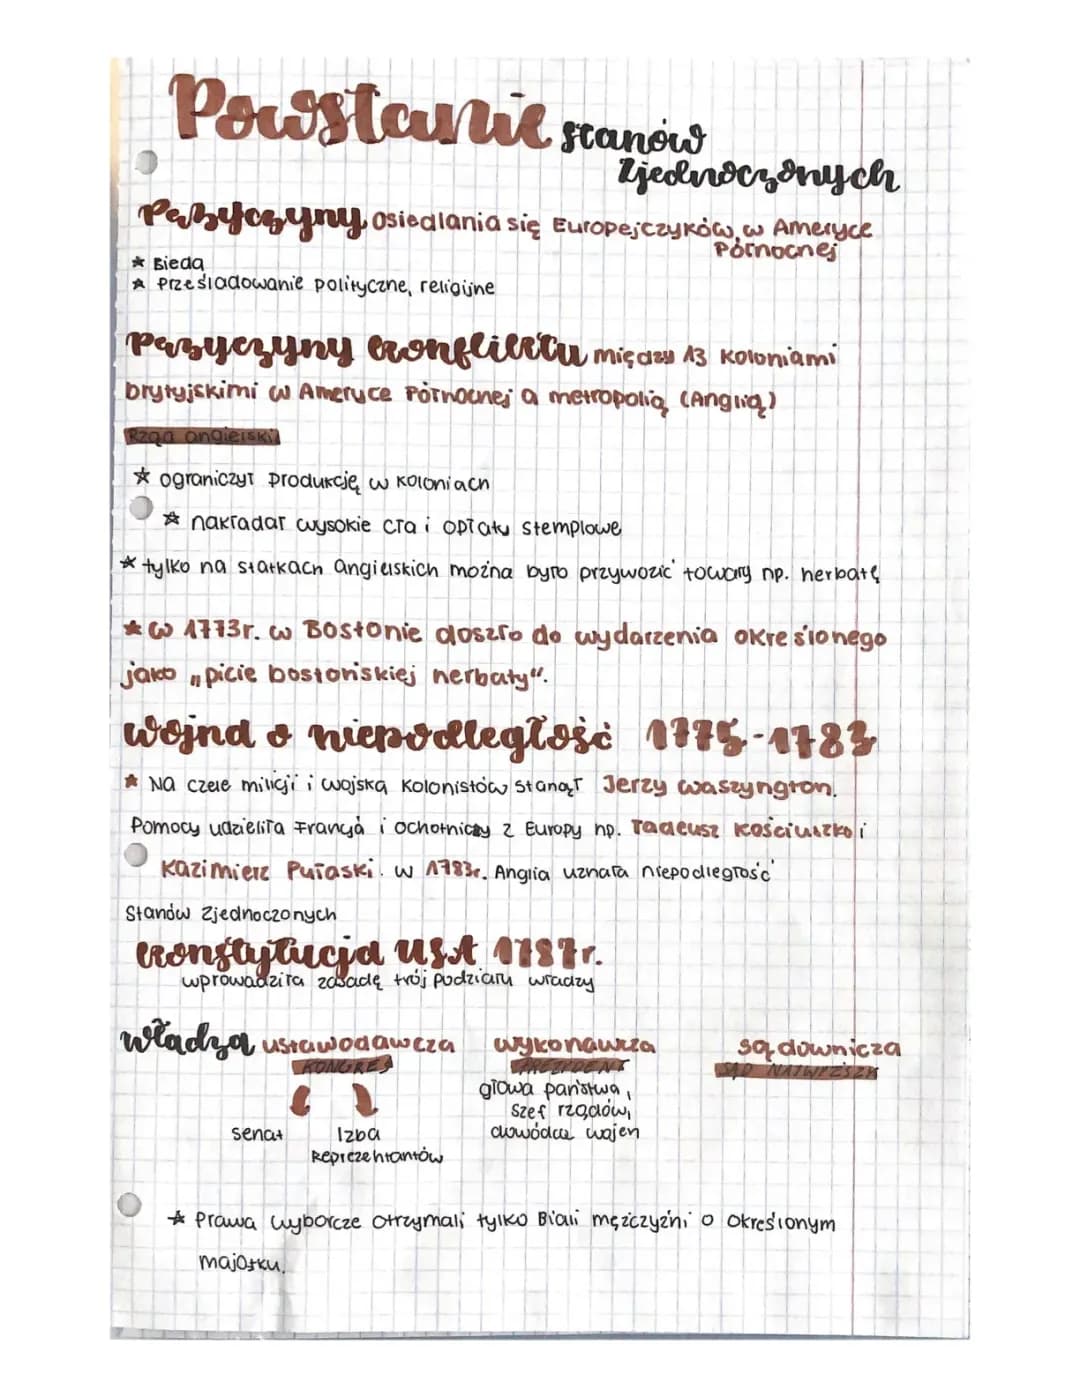 Powstanie stanów
Zjednoczonych
Przyczyny osiedlania się Europejczyków w Ameryce
Północnej
* Bieda
* Prześladowanie polityczne, religijne
Przyczyny konfliktu między 13 koloniami
brytyjskimi w Ameryce Północnej a metropolią (Anglią)
Rząd angielski
* ograniczył produkcję w koloniach
* nakładał wysokie cła i opłaty stemplowe
* tylko na statkach angielskich można było przywozić towary np. herbatę
* w 1773r. w Bostonie doszło do wydarzenia określonego
jako „picie bostońskiej herbaty".
Wojna o niepodległość 1775-1783
* Na czele milicji i wojska kolonistów stanął Jerzy waszyngton.
Pomocy udzieliła Francja i ochotniczy z Europy np. Tadeusz Kościuszko i
Kazimierz Pułaski. w 1783r. Anglia uznała niepodległość
Stanów Zjednoczonych
Konstytucja USA 1787r.
wprowadziła zasadę trój podziału władzy
Władza ustawodawcza wykonawcza sądownicza
KONGRES PREZYDENT SĄD NAJWYŻSZY
głowa państwa,
szef rządów,
senat Izba dowódca wojen
Reprezentantów
* Prawa wyborcze otrzymali tylko Biali mężczyźni o określonym
majątku.